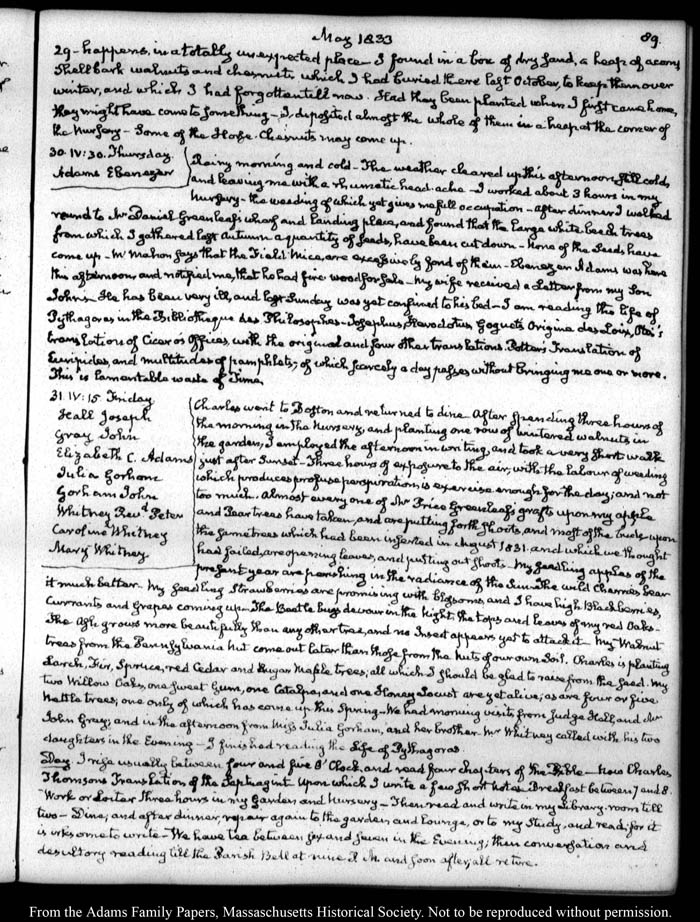 May 1833
89.
29 - happens, in a totally unexpected place - I found in a box of dry sand, a heap of acorns
Shellbark walnuts and chesnuts which I had buried there last October, to keep them over
winter, and which I had forgotten till now. Had they been planted when I first came home,
they might have come to something - I deposited almost the whole of them in a heap at the corner of
the Nursery - Some of the Horse Chesnuts may come up.
30. IV: 30. Thursday.
Adams Ebenezer
Rainy morning and cold - The weather cleared up this afternoon, still cold,
and leaving me with a rhumatic head-ache - I worked about 3 hours in my
Nursery - the weeding of which yet gives me full occupation - After dinner I walked
round to Mr Daniel Greenleaf's wharf and landing place, and found that the large white beech trees
from which I gathered last Autumn a quantity of seeds, have been cut down - None of the Seeds have
come up - Mr Mahon says that the Field Mice, are excessively fond of them - Ebenezer Adams was here
this afternoon, and notified me, that he had fire wood for sale - My wife received a Letter from my Son
John - He has been very ill, and last Sunday was yet confined to his bed - I am reading the life of
Pythagoras in the Bibliotheque des Philosophes - Josephus, Herodotus, Goguet's Origine des Loix,
translation of Cicero's Offices, with the original and four other translations. Potter's Translation of
Euripides, and multitudes of pamphlets, of which scarcely a day passes without bringing me one or more.
This is lamentable waste of Time.
31. IV: 15. Friday
Heall Joseph
Gray John
Elizabeth C. Adams
Julia Gorham
Gorham John
Whitney Revd Peter
Caroline Whitney
Mary Whitney
Charles went to Boston and returned to dine. After spending three hours of
the morning in the Nursery, and planting one row of wintered walnuts in
the garden, I employed the afternoon in writing, and took a very short walk
just after Sunset - Three hours of exposure to the air, with the labour of weeding
which produces profuse perspiration is exercise enough for the day; and not
too much. Almost every one of Mr Price Greenleaf's grafts upon my apple
and Pear trees have taken, and are putting forth shoots, and most of the buds upon
the same trees which had been inserted in August 1831 and which we thought
had failed, are opening leaves, and putting out shoots - My seedling apples of the
present year are perishing in the radiance of the Sun. The wild Cherries bear
it much better - My seedling Strawberries are promising with blossoms, and I have high Blackberries,
Currants and Grapes coming up - The Beetle bugs devour in the Night the tops and leaves of my red Oaks -
The Ash grows more beautifully than any other tree, and no Insect appears yet to attack it. My Walnut
trees from the Pennsylvania nut come out later than those from the nuts of our own Soil. Charles is planting
Larch, Fir, Spruce, red Cedar and Sugar Maple trees, all which I should be glad to raise from the Seed. My
two Willow Oaks, one Sweet Gum, one Catalpa, and one Honey Locust are yet alive; as are four or five
Nettle trees; one only of which has come up this Spring - We had morning visits from Judge Hall and Mr
John Gray; and in the afternoon from Miss Julia Gorham, and her brother. Mr Whitney called with his two
daughters in the Evening - I finished reading the Life of Pythagoras.
Day. I rise usually between four and five O'Clock, and read four chapters of the Bible - now Charles
Thomson's Translation of the Septuagint upon which I write a few short notes. Breakfast between 7 and 8.
Work or Loiter three hours in my Garden and Nursery - Then read and write in my Library room till
two - Dine; and after dinner, repair again to the garden and lounge, or to my Study, and read; for it
is irksome to write - We have tea between six and seven in the Evening; then conversation and
desultory reading till the Parish Bell at nine P.M. and soon after, all retire.
From the Adams Family Papers, Massachusetts Historical Society. Not to be reproduced without permission.